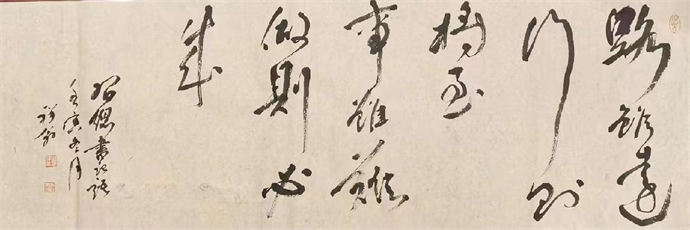 路雖遠
行則
將至
事雖難
做則必
成
習總書記語
壬寅冬月